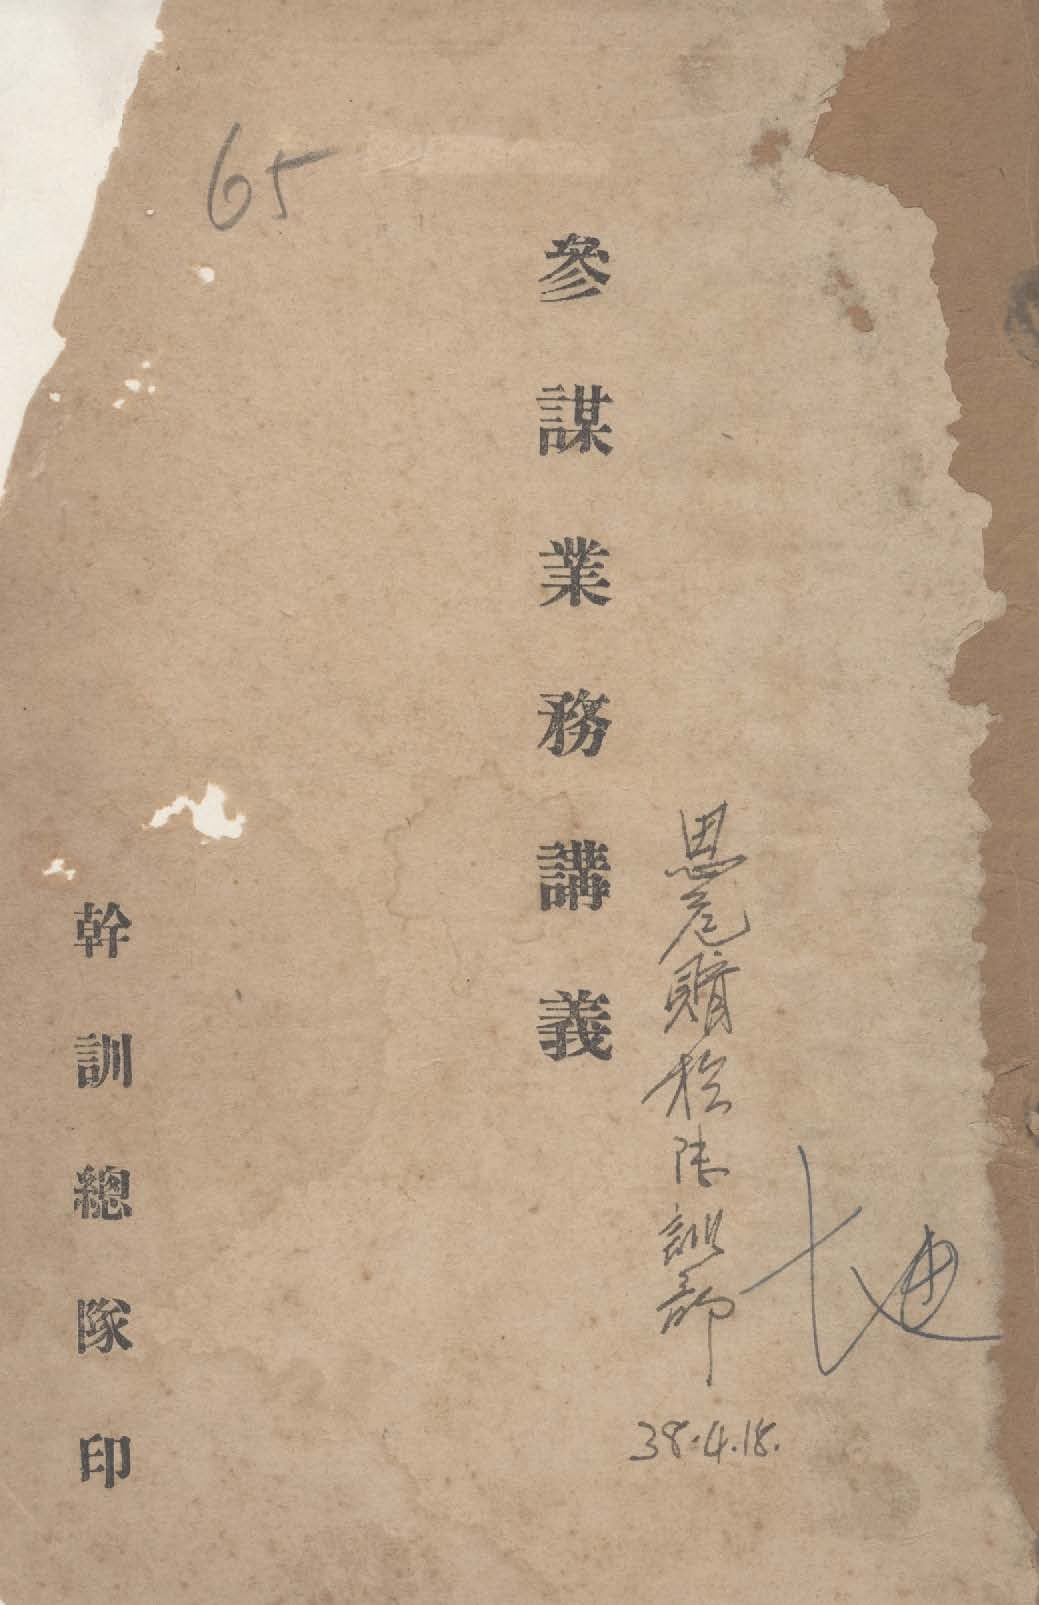 65
參謀業務講義
思危贈於陸訓部
38.4.18.
幹訓總隊印